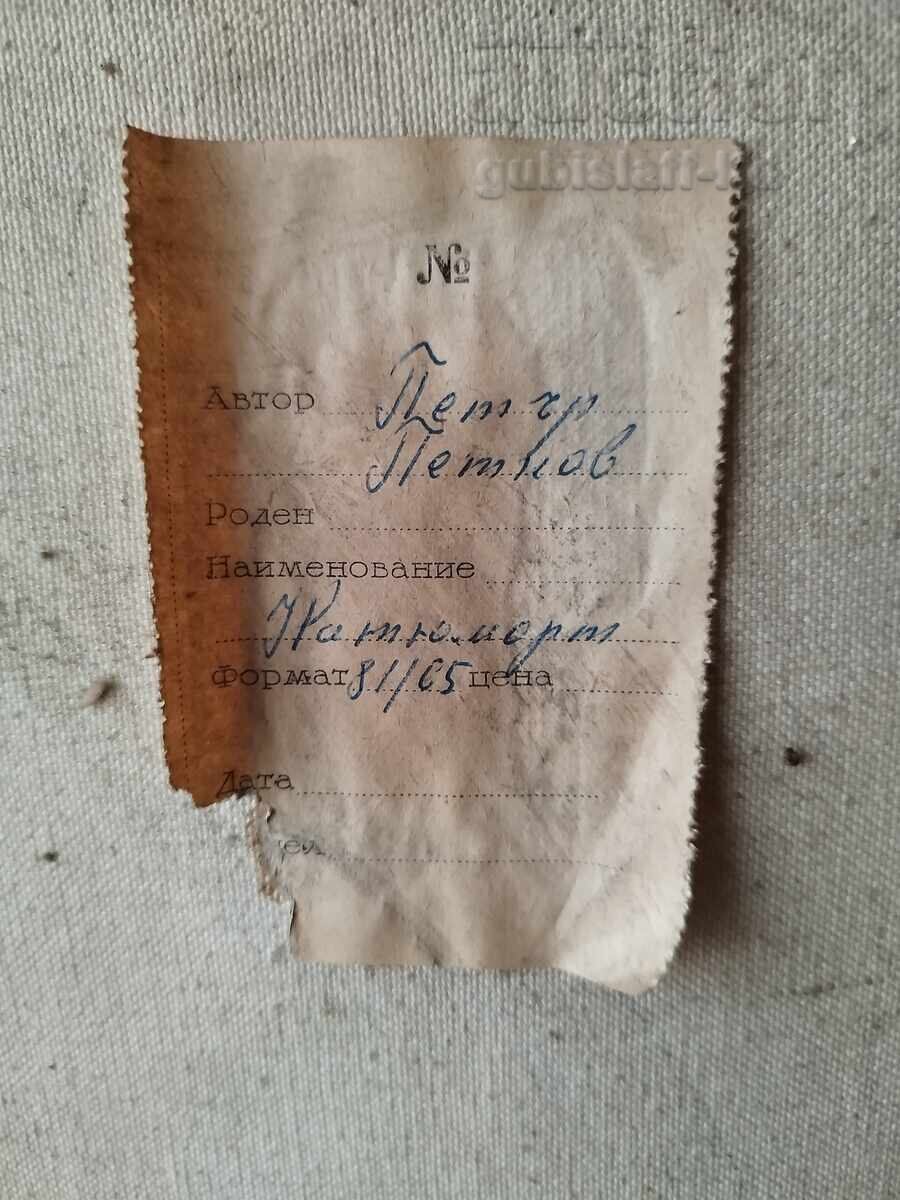 gubislaff-
№
Автор Петър
Петков
Роден
Наименование
Натюрморт
Формат 81/65 цена
Дата